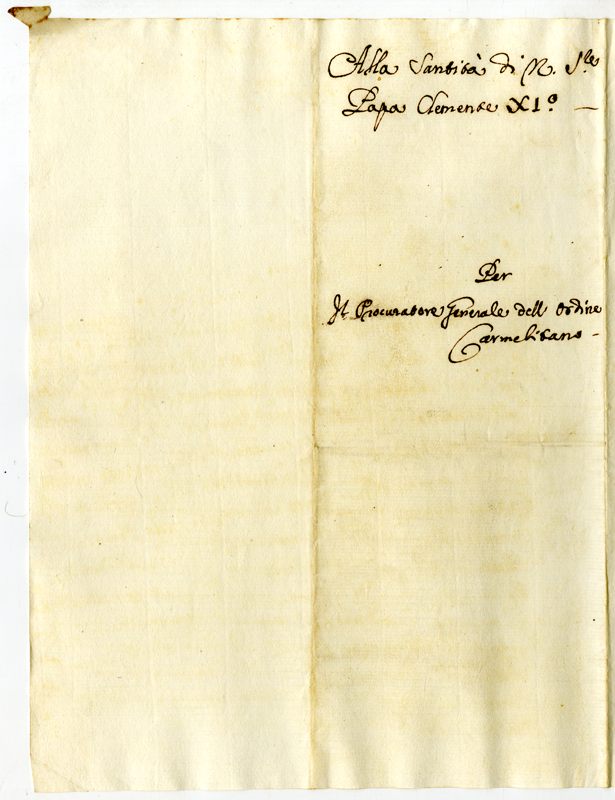 Alla Santità di N. S.re
Papa Clemente XI.o —
Per
Il Procuratore Generale dell Ordine
Carmelitano -